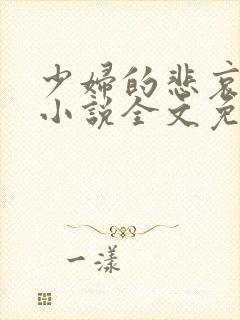 少婦的悲哀
小說全文免
一漾